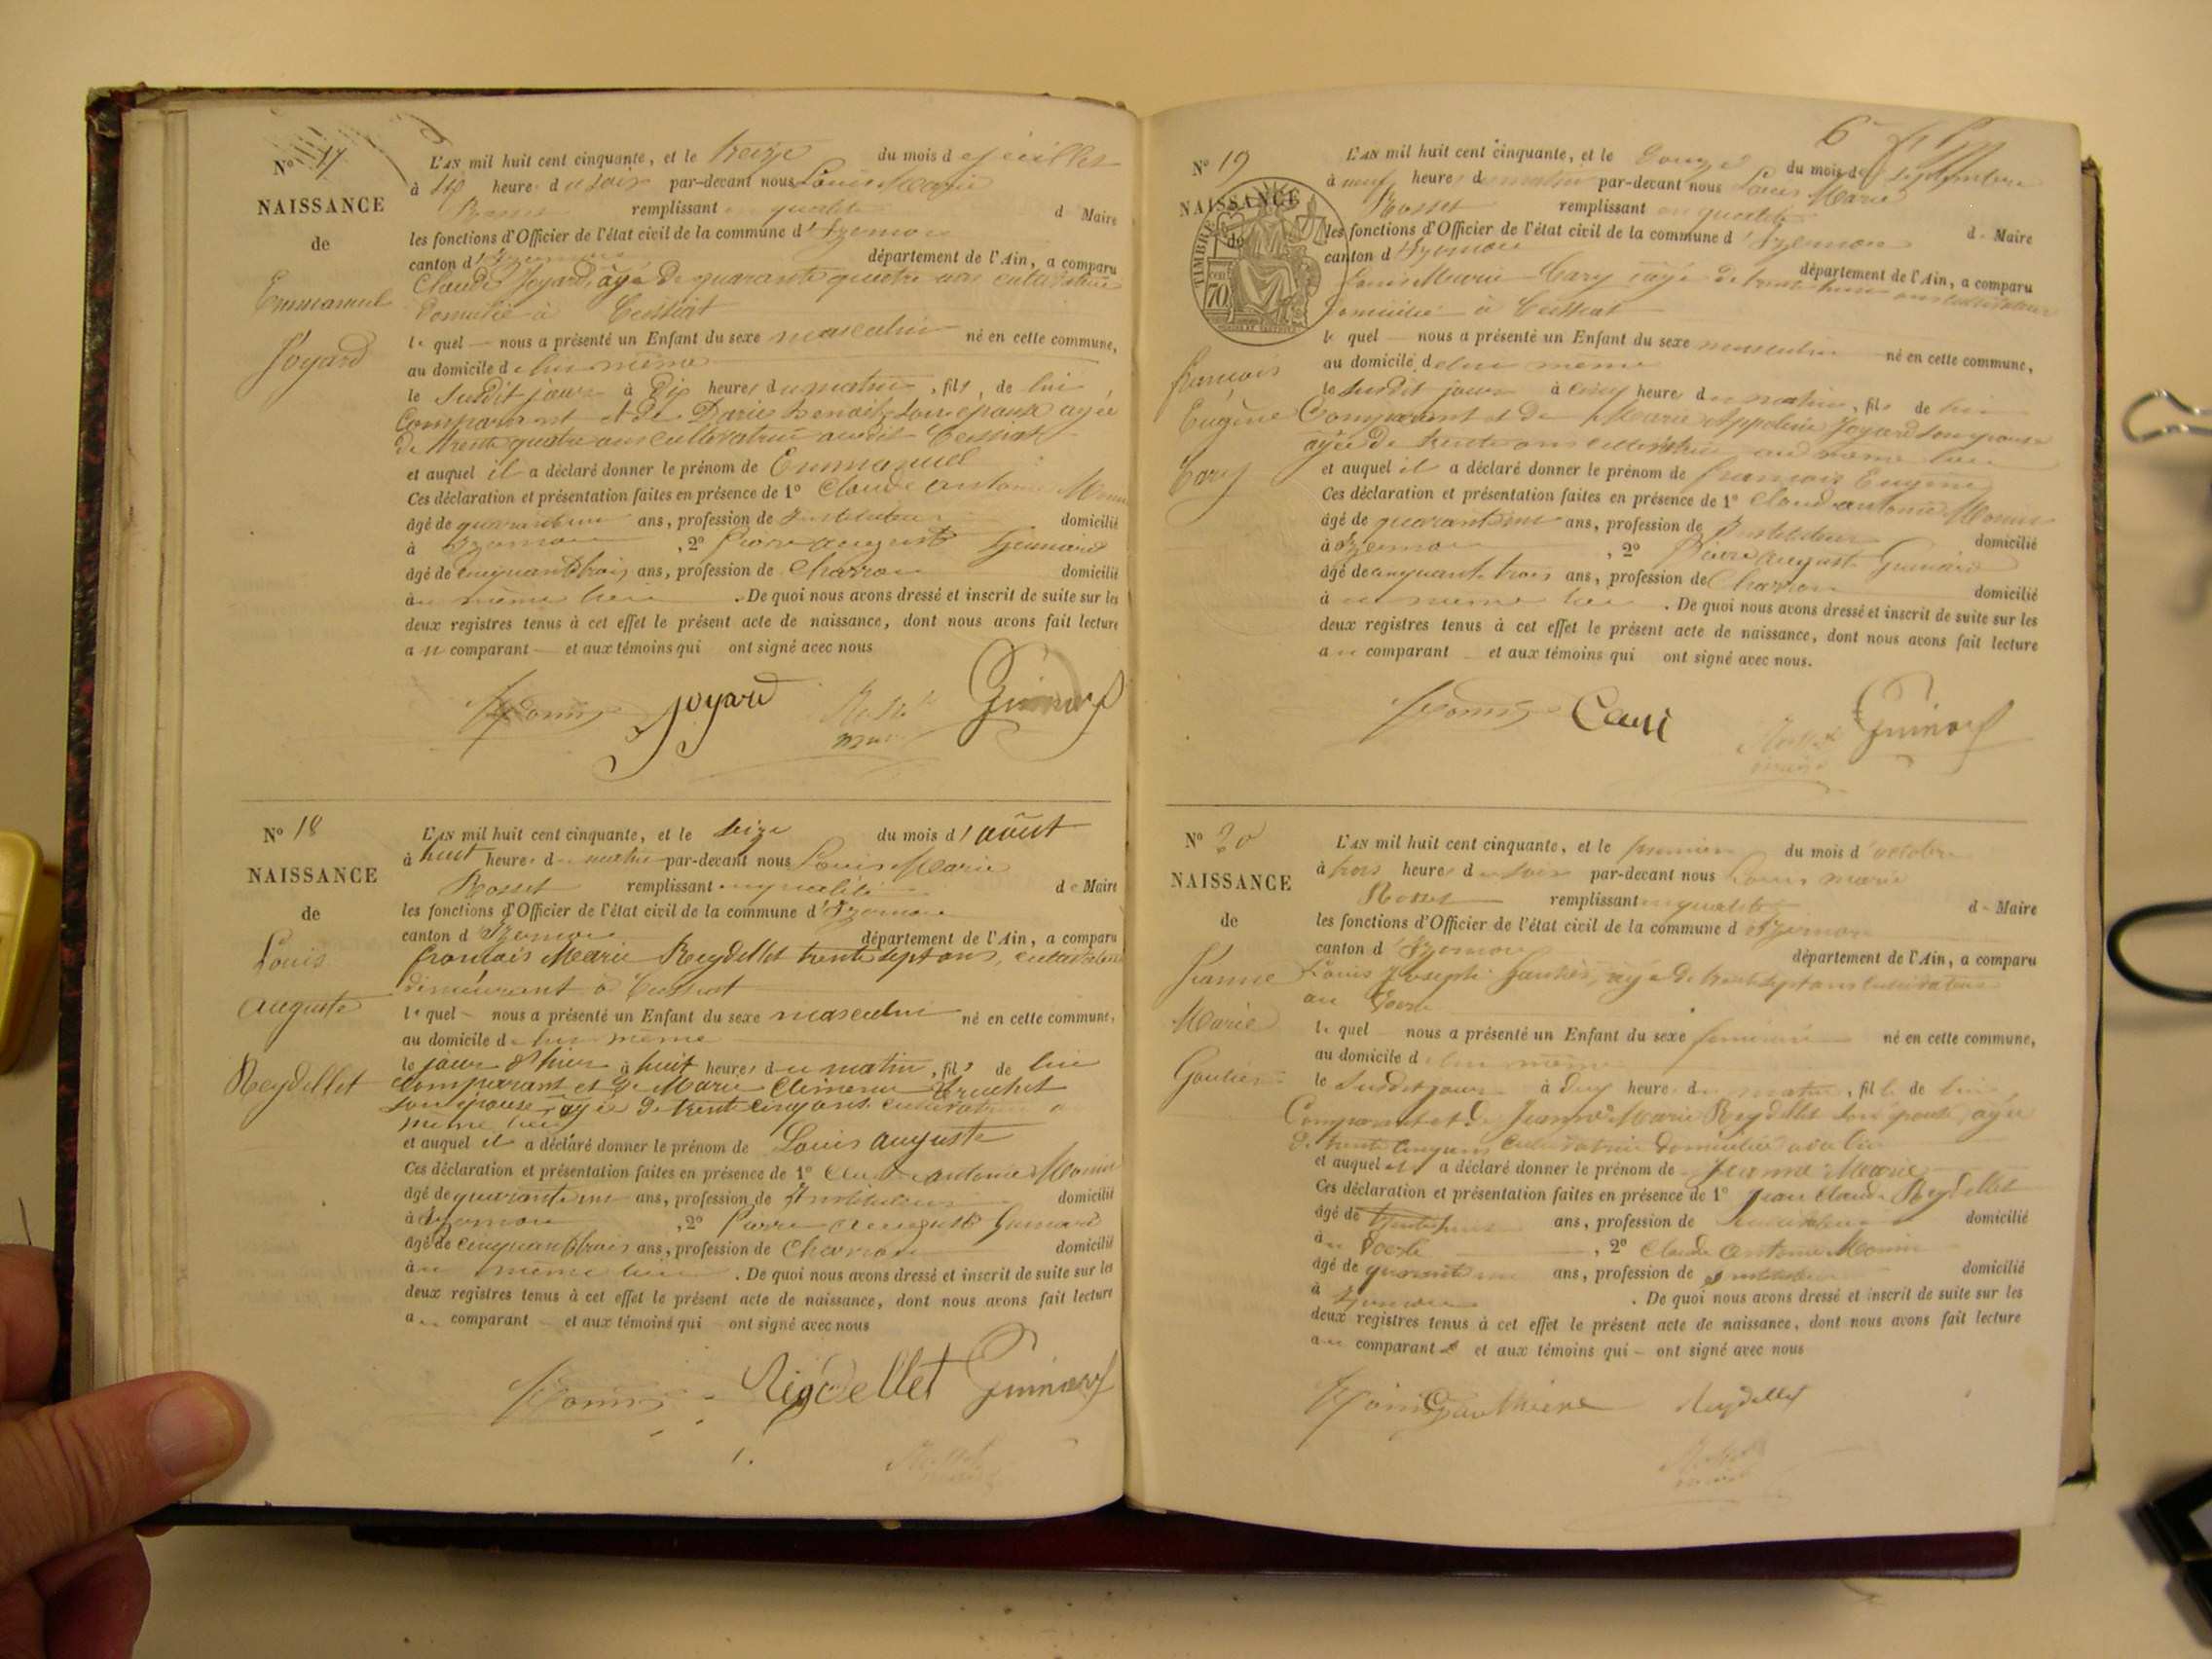 N° 17
NAISSANCE
de
Emmanuel
Joyard
L'AN mil huit cent cinquante, et le treize du mois de juillet
à six heure du soir par-devant nous Louis Marie
Rosset remplissant en qualité de Maire
les fonctions d'Officier de l'état civil de la commune d'Izernore
canton d'Izernore département de l'Ain, a comparu
Claude Joyard, âgé de quarante quatre ans cultivateur
domicilié à Ceissiat
le quel nous a présenté un Enfant du sexe masculin né en cette commune,
au domicile de lui même
le susdit jour à dix heures du matin, fils, de lui
Comparant et de Marie Benoit son épouse âgée
de trente quatre ans cultivatrice audit Ceissiat
et auquel il a déclaré donner le prénom de Emmanuel
Ces déclaration et présentation faites en présence de 1° Claude antoine
âgé de quarante un ans, profession de Instituteur domicilié
à Izernore, 2° Pierre auguste Guinard
âgé de cinquante trois ans, profession de Charron domicilié
au même lieu. De quoi nous avons dressé et inscrit de suite sur les
deux registres tenus à cet effet le présent acte de naissance, dont nous avons fait lecture
au comparant et aux témoins qui ont signé avec nous
Joyard Guinard
N° 18
NAISSANCE
de
Louis
auguste
Reydellet
L'AN mil huit cent cinquante, et le seize du mois d'août
à huit heures du matin par-devant nous Louis Marie
Rosset remplissant en qualité de Maire
les fonctions d'Officier de l'état civil de la commune d'Izernore
canton d'Izernore département de l'Ain, a comparu
françois Marie Reydellet trente sept ans, cultivateur
demeurant à Ceissiat
le quel nous a présenté un Enfant du sexe masculin né en cette commune,
au domicile de lui même
le jour d'hier à huit heures du matin, fils de lui
comparant et de Marie
son épouse âgée de trente cinq ans cultivatrice
même lieu
et auquel il a déclaré donner le prénom de Louis auguste
Ces déclaration et présentation faites en présence de 1° Claude antoine
âgé de quarante un ans, profession de Instituteur domicilié
à Izernore, 2° Pierre auguste Guinard
âgé de cinquante trois ans, profession de Charron domicilié
au même lieu. De quoi nous avons dressé et inscrit de suite sur les
deux registres tenus à cet effet le présent acte de naissance, dont nous avons fait lecture
au comparant et aux témoins qui ont signé avec nous
Guinard
6
N° 19
NAISSANCE
de
TIMBRE
70
françois
Eugène
Cary
L'AN mil huit cent cinquante, et le douze du mois de septembre
à neuf heures du matin par-devant nous Louis Marie
Rosset remplissant en qualité de Maire
les fonctions d'Officier de l'état civil de la commune d'Izernore
canton d'Izernore département de l'Ain, a comparu
Louis Marie Cary âgé de
domicilié à Ceissiat
le quel nous a présenté un Enfant du sexe masculin né en cette commune,
au domicile de lui même
le susdit jour à cinq heure du matin, fils de lui
Comparant et de Marie Appoline Joyard son épouse
âgée de trente ans cultivatrice au même lieu
et auquel il a déclaré donner le prénom de françois Eugène
Ces déclaration et présentation faites en présence de 1° Claude antoine
âgé de quarante un ans, profession de Instituteur domicilié
à Izernore, 2° Pierre auguste Guinard
âgé de cinquante trois ans, profession de Charron domicilié
au même lieu. De quoi nous avons dressé et inscrit de suite sur les
deux registres tenus à cet effet le présent acte de naissance, dont nous avons fait lecture
au comparant et aux témoins qui ont signé avec nous.
Guinard
N° 20
NAISSANCE
de
Jeanne
Marie
Gautier
L'AN mil huit cent cinquante, et le premier du mois d'octobre
à trois heures du soir par-devant nous Louis marie
Rosset remplissant en qualité de Maire
les fonctions d'Officier de l'état civil de la commune d'Izernore
canton d'Izernore département de l'Ain, a comparu
Louis Joseph Gautier, âgé de trente sept ans cultivateur
au
le quel nous a présenté un Enfant du sexe féminin né en cette commune,
au domicile de lui même
le susdit jour à dix heure du matin, fille de lui
Comparant et de Jeanne Marie Reydellet son épouse, âgée
de trente cinq ans cultivatrice domiciliée
et auquel il a déclaré donner le prénom de Jeanne Marie
Ces déclaration et présentation faites en présence de 1° Jean Claude Reydellet
âgé de ans, profession de cultivateur domicilié
au, 2° Claude Antoine
âgé de quarante un ans, profession de instituteur domicilié
à Izernore. De quoi nous avons dressé et inscrit de suite sur les
deux registres tenus à cet effet le présent acte de naissance, dont nous avons fait lecture
au comparant et aux témoins qui ont signé avec nous
Reydellet